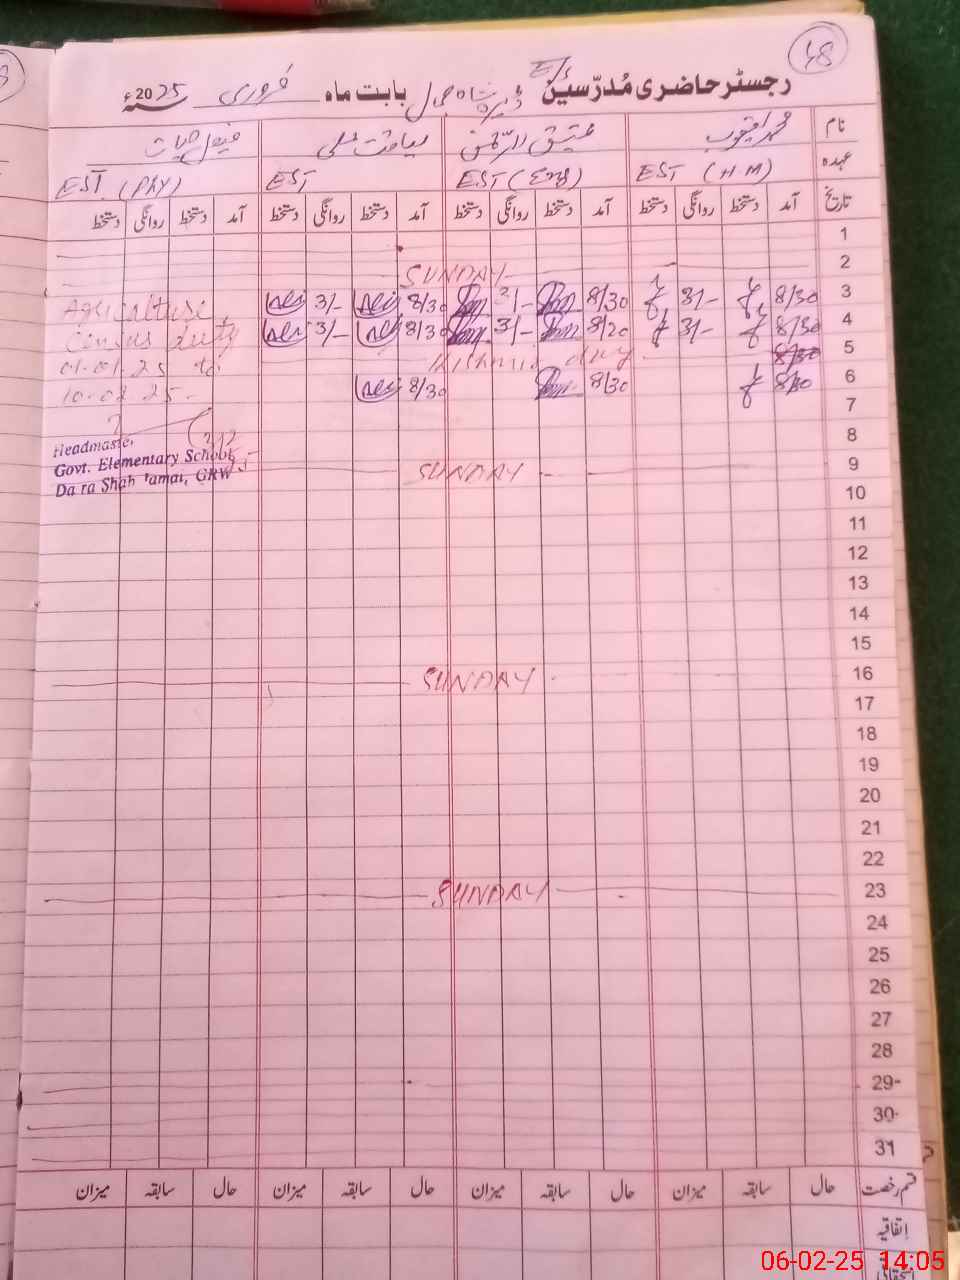 48
رجسٹر حاضری مُدرّسین بابت ماہ فروری 2025ء
نام محمد یعقوب عتیق الرحمٰن لیاقت علی فیصل حیات
عہدہ EST (H M) EST (Eng) EST EST (PHY)
تاریخ آمد دستخط روانگی دستخط آمد دستخط روانگی دستخط آمد دستخط روانگی دستخط آمد دستخط روانگی دستخط
1
2 SUNDAY
3 8/30 3/- 8/30 3/- 8/30 3/- Agriculture
4 8/30 3/- 8/20 3/- 8/30 3/- Census duty
5 8/30 Kishmir day 01.01.25 to
6 8/30 8/30 8/30 10.02.25-
7
8 Headmaster
9 SUNDAY Govt. Elementary School
10 Da ra Shah Jamal, GRW
11
12
13
14
15
16 SUNDAY
17
18
19
20
21
22
23 SUNDAY
24
25
26
27
28
29-
30-
31
قسم رخصت حال سابقہ میزان حال سابقہ میزان حال سابقہ میزان حال سابقہ میزان
اِتفاقیہ
06-02-25 14:05